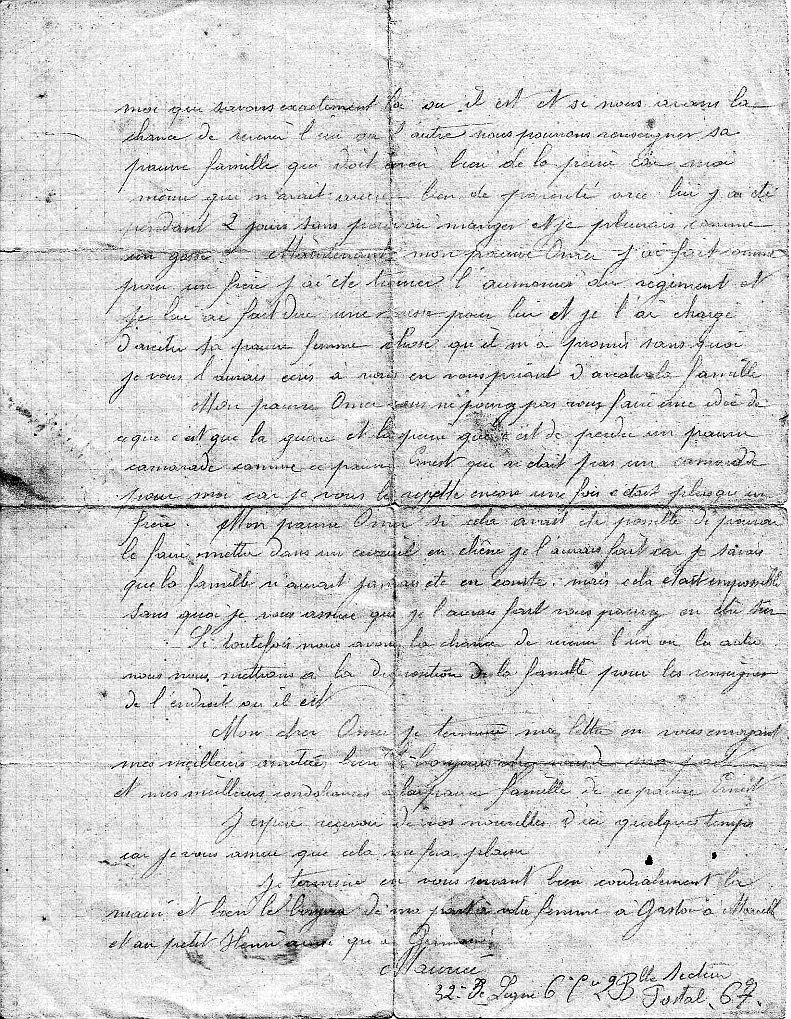 moi que savons exactement la ou il est et si nous avons la
chance de revenir l'un ou l'autre nous pourrons renseigner sa
pauvre famille qui doit avoir bien de la peine car moi
même que n'avait aucun lien de parenté avec lui j'ai été
pendant 2 jours sans pouvoir manger et je pleurais comme
un gosse. Maintenant mon pauvre Omer j'ai fait comme
pour un frère j'ai ete trouver l'aumonier du regiment et
je lui ai fait dire une messe pour lui et je l'ai chargé
d'avertir sa pauvre femme chose qu'il m'a promis sans quoi
je vous l'aurais ecris a vous en vous priant d'avertir la famille
Mon pauvre Omer vous ne pouvez pas vous faire une idée de
ce que c'est que la guerre et la peine que c'est de perdre un pauvre
camarade comme ce pauvre Ernest qui n'etait pas un camarade
pour moi car je vous le repette encore une fois c'etait plus qu'un
frère. Mon pauvre Omer si cela avait ete possible de pouvoir
le faire mettre dans un cercueil en chêne je l'aurais fait car je savais
que la famille n'aurait jamais ete en compte. mais cela etait impossible
sans quoi je vous assure que je l'aurais fait vous pouvez en etre sur
Si toutefois nous avons la chance de revenir l'un ou l'autre
nous nous mettrons a la disposition de la famille pour les renseigner
de l'endroit ou il est
Mon cher Omer je termine ma lettre en vous envoyant
mes meilleures amitiés bien le bonjour
et mes meilleurs condoleances a la pauvre famille de ce pauvre Ernest
J'espere recevoir de vos nouvelles d'ici quelques temps
car je vous assure que cela me fera plaisir
Je termine en vous serrant bien cordialement la
main et bien le bonjour de ma part a votre femme a Gaston a Marcelle
et au petit Henri ainsi qu'a Germaine
Maurice
32e Re Ligne 6e Cie 2 Blle Secteur
Postal. 67.